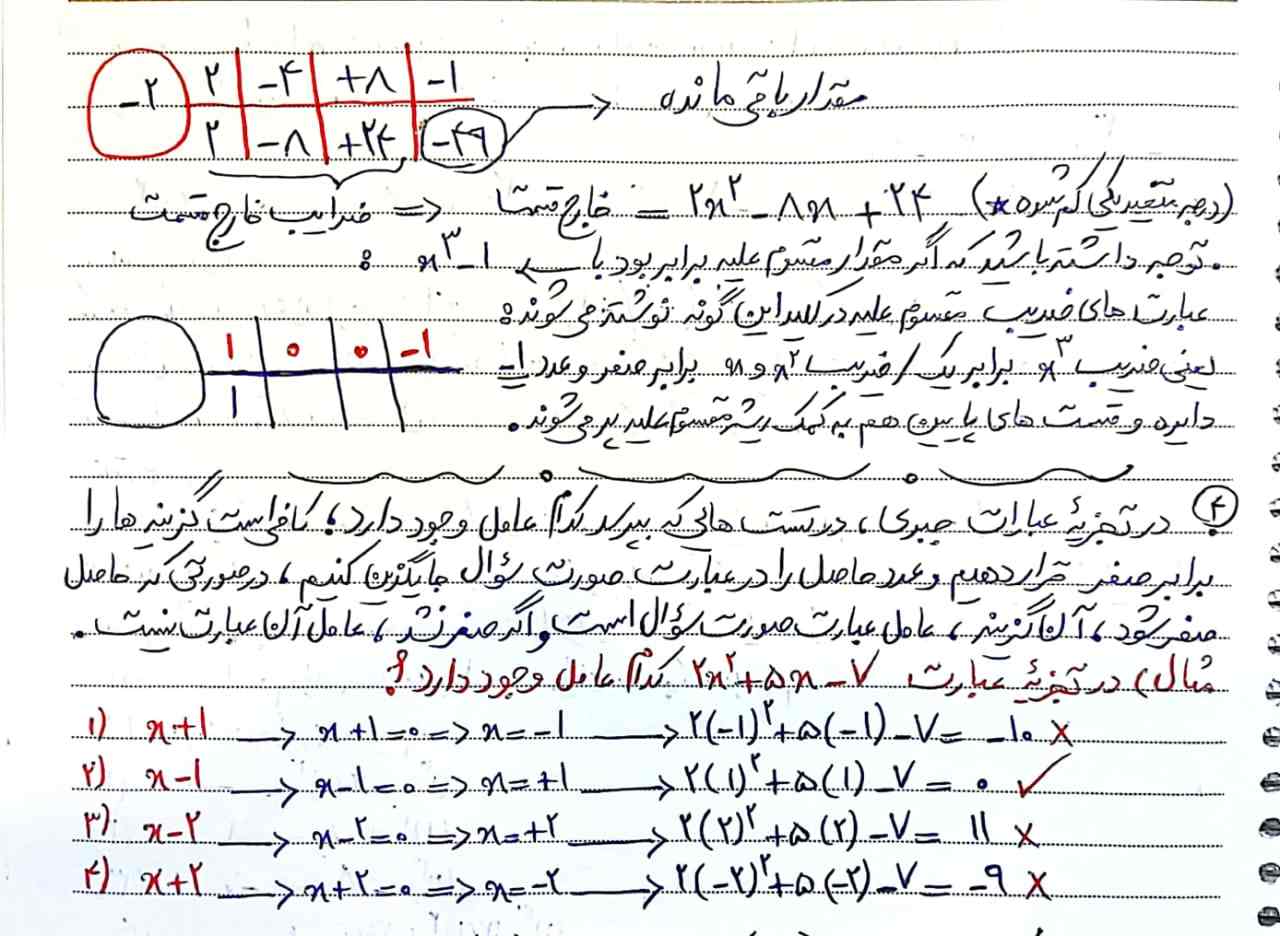 -۲ | ۲ | -۴ | +۸ | -۱
۲ | -۸ | +۲۴ | -۴۹ → مقدار باقی مانده
ضرایب خارج قسمت => خارج قسمت = ۲x^۲ - ۸x + ۲۴ (درجه متغیر یکی کم شود ★)
. توجه داشته باشید که اگر مقدار مقسوم علیه برابر بود با x^۳-۱ :
عبارت های ضریب مقسوم علیه در کلید این گونه نوشته می شوند:
۱ | ۰ | ۰ | -۱
یعنی ضریب x^۳ برابر یک / ضریب x^۲ و x برابر صفر و عدد -۱
۱
دایره و قسمت های پایین هم به کمک ریشه مقسوم علیه پر می شوند.
۴ در تجزیهٔ عبارات جبری، در تست هایی که بپرسد کدام عامل وجود دارد؛ کافی است گزینه ها را
برابر صفر قرار دهیم و عدد حاصل را در عبارت صورت سؤال جایگزین کنیم، درصورتی که حاصل
صفر شود، آن گزینه، عامل عبارت صورت سؤال است و اگر صفر نشد، عامل آن عبارت نیست.
مثال) در تجزیهٔ عبارت ۲x^۲+۵x-۷ کدام عامل وجود دارد؟
۱) x+۱ → x+۱=۰ => x=-۱ → ۲(-۱)^۲+۵(-۱)-۷= -۱۰ ×
۲) x-۱ → x-۱=۰ => x=+۱ → ۲(۱)^۲+۵(۱)-۷= ۰ ✓
۳) x-۲ → x-۲=۰ => x=+۲ → ۲(۲)^۲+۵(۲)-۷= ۱۱ ×
۴) x+۲ → x+۲=۰ => x=-۲ → ۲(-۲)^۲+۵(-۲)-۷= -۹ ×